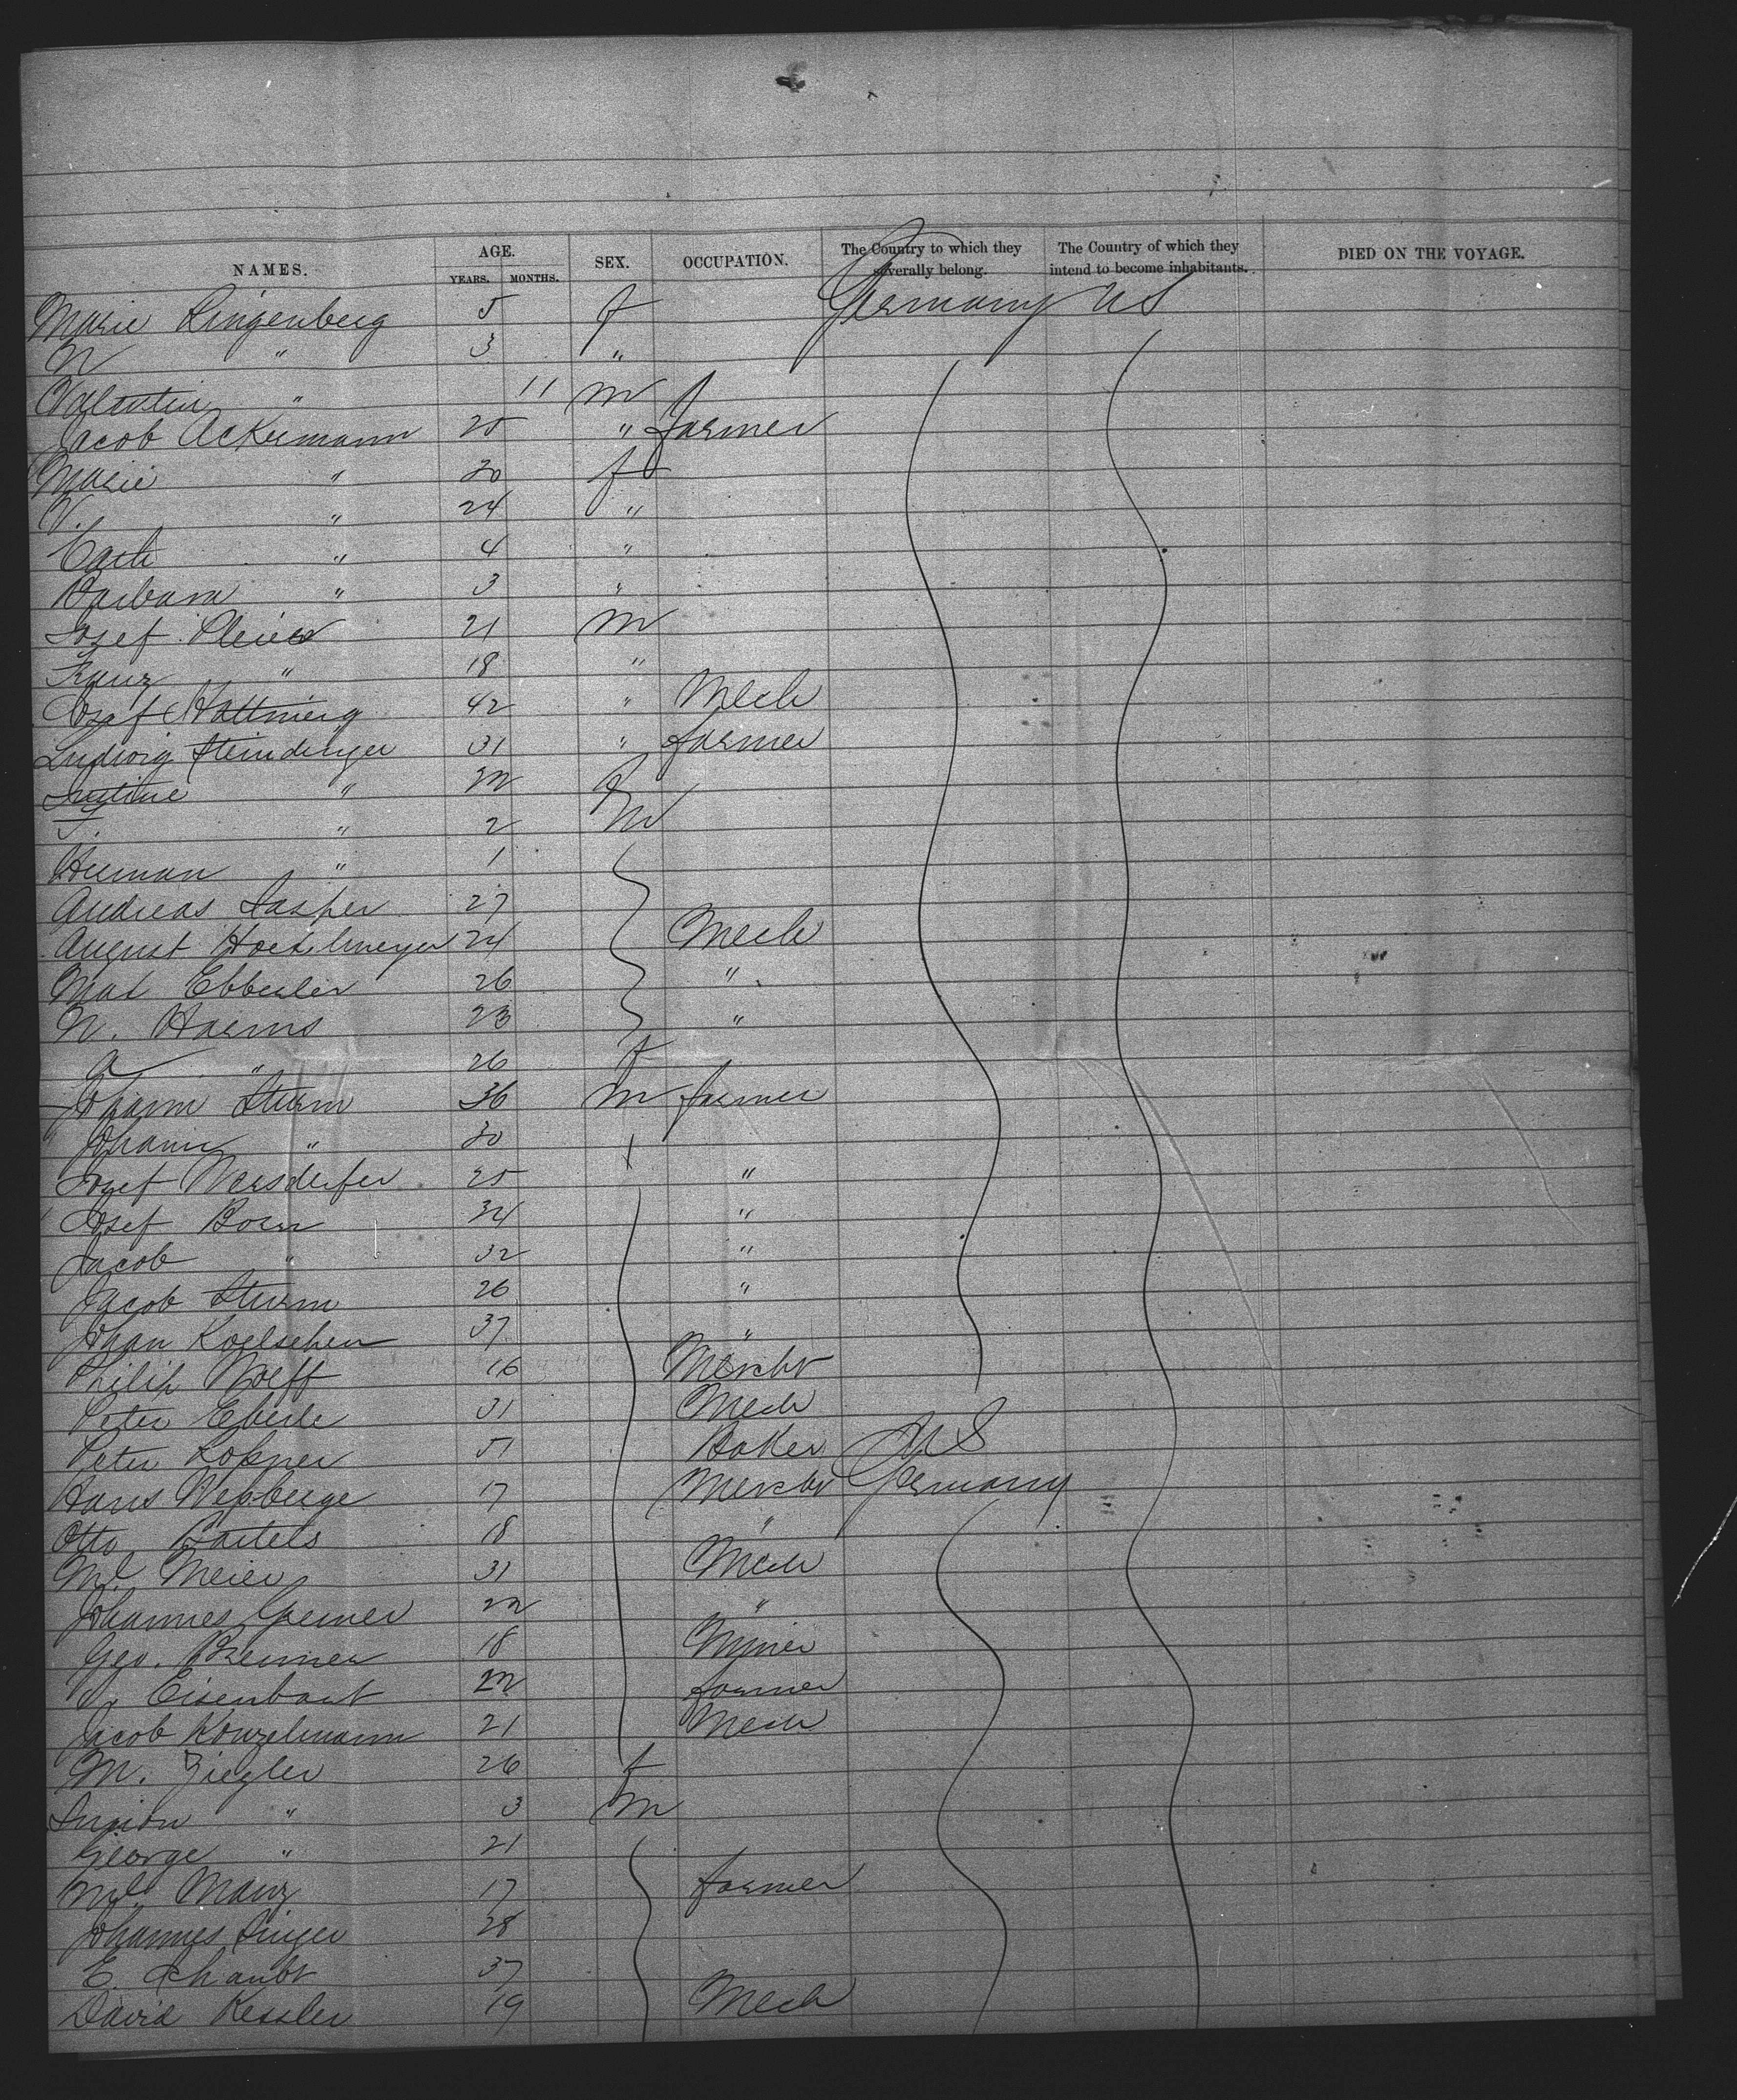 NAMES. AGE. YEARS. MONTHS. SEX. OCCUPATION. The Country to which they severally belong. The Country of which they intend to become inhabitants. DIED ON THE VOYAGE.
Marie Ringenberg 5 f Germany US
N " 3 "
Valentin " 11 m
Jacob Ackermann 25 " farmer
Marie " 30 f
V. " 24 "
Cath " 4 "
Barbara " 3 "
Josef 21 m
Franz " 18 "
Josef 42 " Mech
Ludwig Steindinger 31 " farmer
Justine " 22 f
F. " 2 m
Herman " 1
Andreas Jasper 27
August 24 Mech
Max 26 "
N. Harms 23 "
A " 26 f
Johann Sturm 36 m farmer
Johann " 30
Josef 25 "
Josef Boerr 34 "
Jacob " 32 "
Jacob Sturm 26 "
Johan Koelschen 37 "
Philip Wolff 16 Mercht
Peter Eberle 31 Mech
Peter 51 Baker US
Hans 17 Mercht Germany
Otto Bartels 18 "
Ml Meier 31 Mech
Johannes 22 "
Geo. Bremer 18 Miner
Eisenbart 22 farmer
Jacob Konzelmann 21 Mech
M. Ziegler 26 f
" 3 m
George " 21
Ml Manz 17 farmer
Johannes Singer 28
E. Schaubt 37
David Kessler 19 Mech